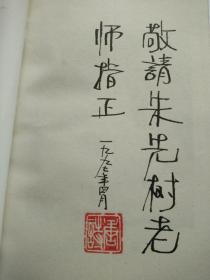 敬請朱先樹老
师指正
一九九七年四月